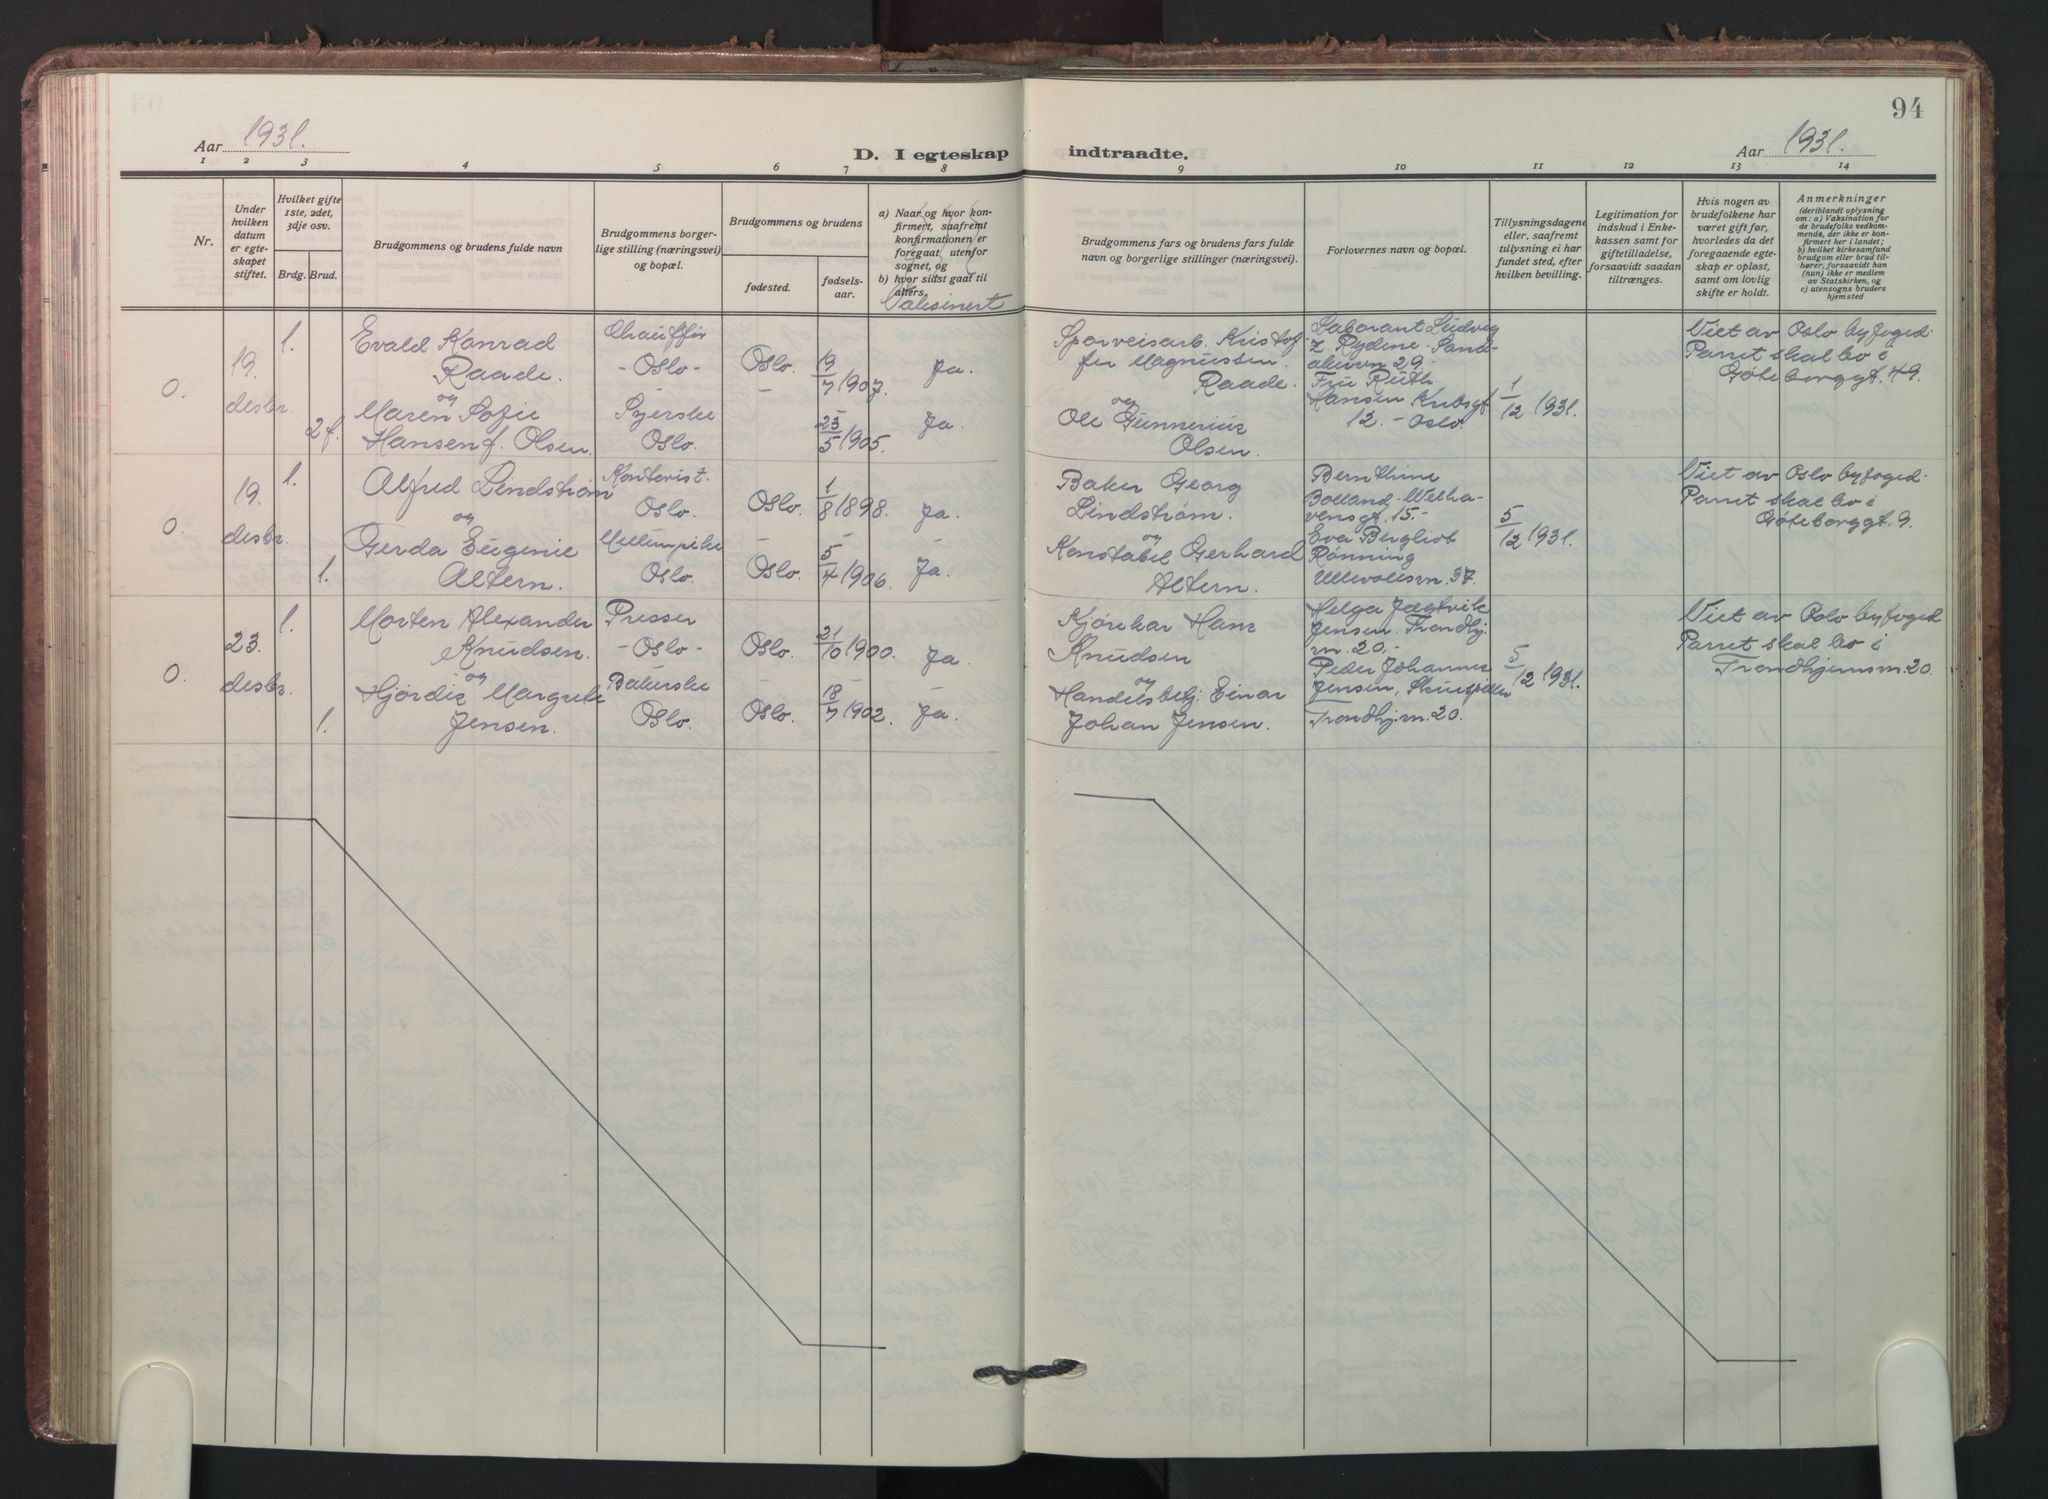 94
Aar 1931.
D. I egteskap indtraadte.
Aar 1931.
1 2 3 4 5 6 7 8 9 10 11 12 13 14
Nr.
Under hvilken datum er egteskapet stiftet.
Hvilket gifte 1ste, 2det, 3dje osv.
Brdg. Brud.
Brudgommens og brudens fulde navn
Brudgommens borgerlige stilling (næringsvei) og bopæl.
Brudgommens og brudens
fødested.
fødselsaar.
a) Naar og hvor konfirmert, saafremt konfirmationen er foregaat utenfor sognet, og
b) hvor sidst gaat til alters.
Vaksinert
Brudgommens fars og brudens fars fulde navn og borgerlige stillinger (næringsvei).
Forlovernes navn og bopæl.
Tillysningsdagene eller, saafremt tillysning ei har fundet sted, efter hvilken bevilling.
Legitimation for indskud i Enkekassen samt for giftetilladelse, forsaavidt saadan tiltrænges.
Hvis nogen av brudefolkene har været gift før, hvorledes da det foregaaende egteskap er opløst, samt om lovlig skifte er holdt.
Anmerkninger
(deriblandt oplysning om: a) Vaksination for de brudefolks vedkommende, der ikke er konfirmert her i landet; b) hvilket kirkesamfund brudgom eller brud tilhører, forsaavidt han (hun) ikke er medlem av Statskirken, og c) utensogns bruders hjemsted
0.
19. desbr.
1.
Evald Konrad
Raade.
og
2 f.
Maren Sofie
Hansen f. Olsen.
Chauffør
- Oslo -
Syerske
Oslo.
Oslo.
-
19/7 1907.
-
23/5 1905.
Ja.
-
Ja.
Sporveisarb. Kristof-
fer Magnussen
Raade.
og
Ole Gunnerius
Olsen.
Laborant Ludvig
Z Rydene. Sand-
akervn 29.
Fru Ruth
Hansen Krebsgt
12. - Oslo.
1/12 1931.
Viet av Oslo byfoged.
Parret skal bo i
Gøteborggt. 49.
0.
19. desbr.
1.
Alfred Lindstrøm
og
1.
Gerda Eugenie
Altern.
Kontorist.
Oslo.
Oslo.
Oslo.
-
Oslo.
1/8 1898.
-
5/4 1906.
Ja.
-
Ja.
Baker Georg
Lindstrøm.
og
Konstabel Gerhard
Altern.
Bernthine
Bolland. Welha-
vensgt. 15. -
Eva Bergliot
Rønning
Ullevolsvn. 37.
5/12 1931.
Viet av Oslo byfoged.
Parret skal bo i
Gøteborggt. 9.
0.
23. desbr.
1.
Morten Alexander
Knudsen.
og
1.
Hjørdis Margrete
Jensen.
Presser
- Oslo -
Bakerske
Oslo.
Oslo.
-
Oslo.
21/10 1900.
-
18/7 1902.
Ja.
-
Ja.
Kjørekar Hans
Knudsen
og
Handelsbetj. Einar
Johan Jensen.
Helga Jægtvik
Jensen. Trondhj.
vn. 20. -
Peder Johannes
Jensen, Skuespiller
Trondhj. vn. 20.
5/12 1931.
Viet av Oslo byfoged
Parret skal bo i
Trondhjemsvn. 20.